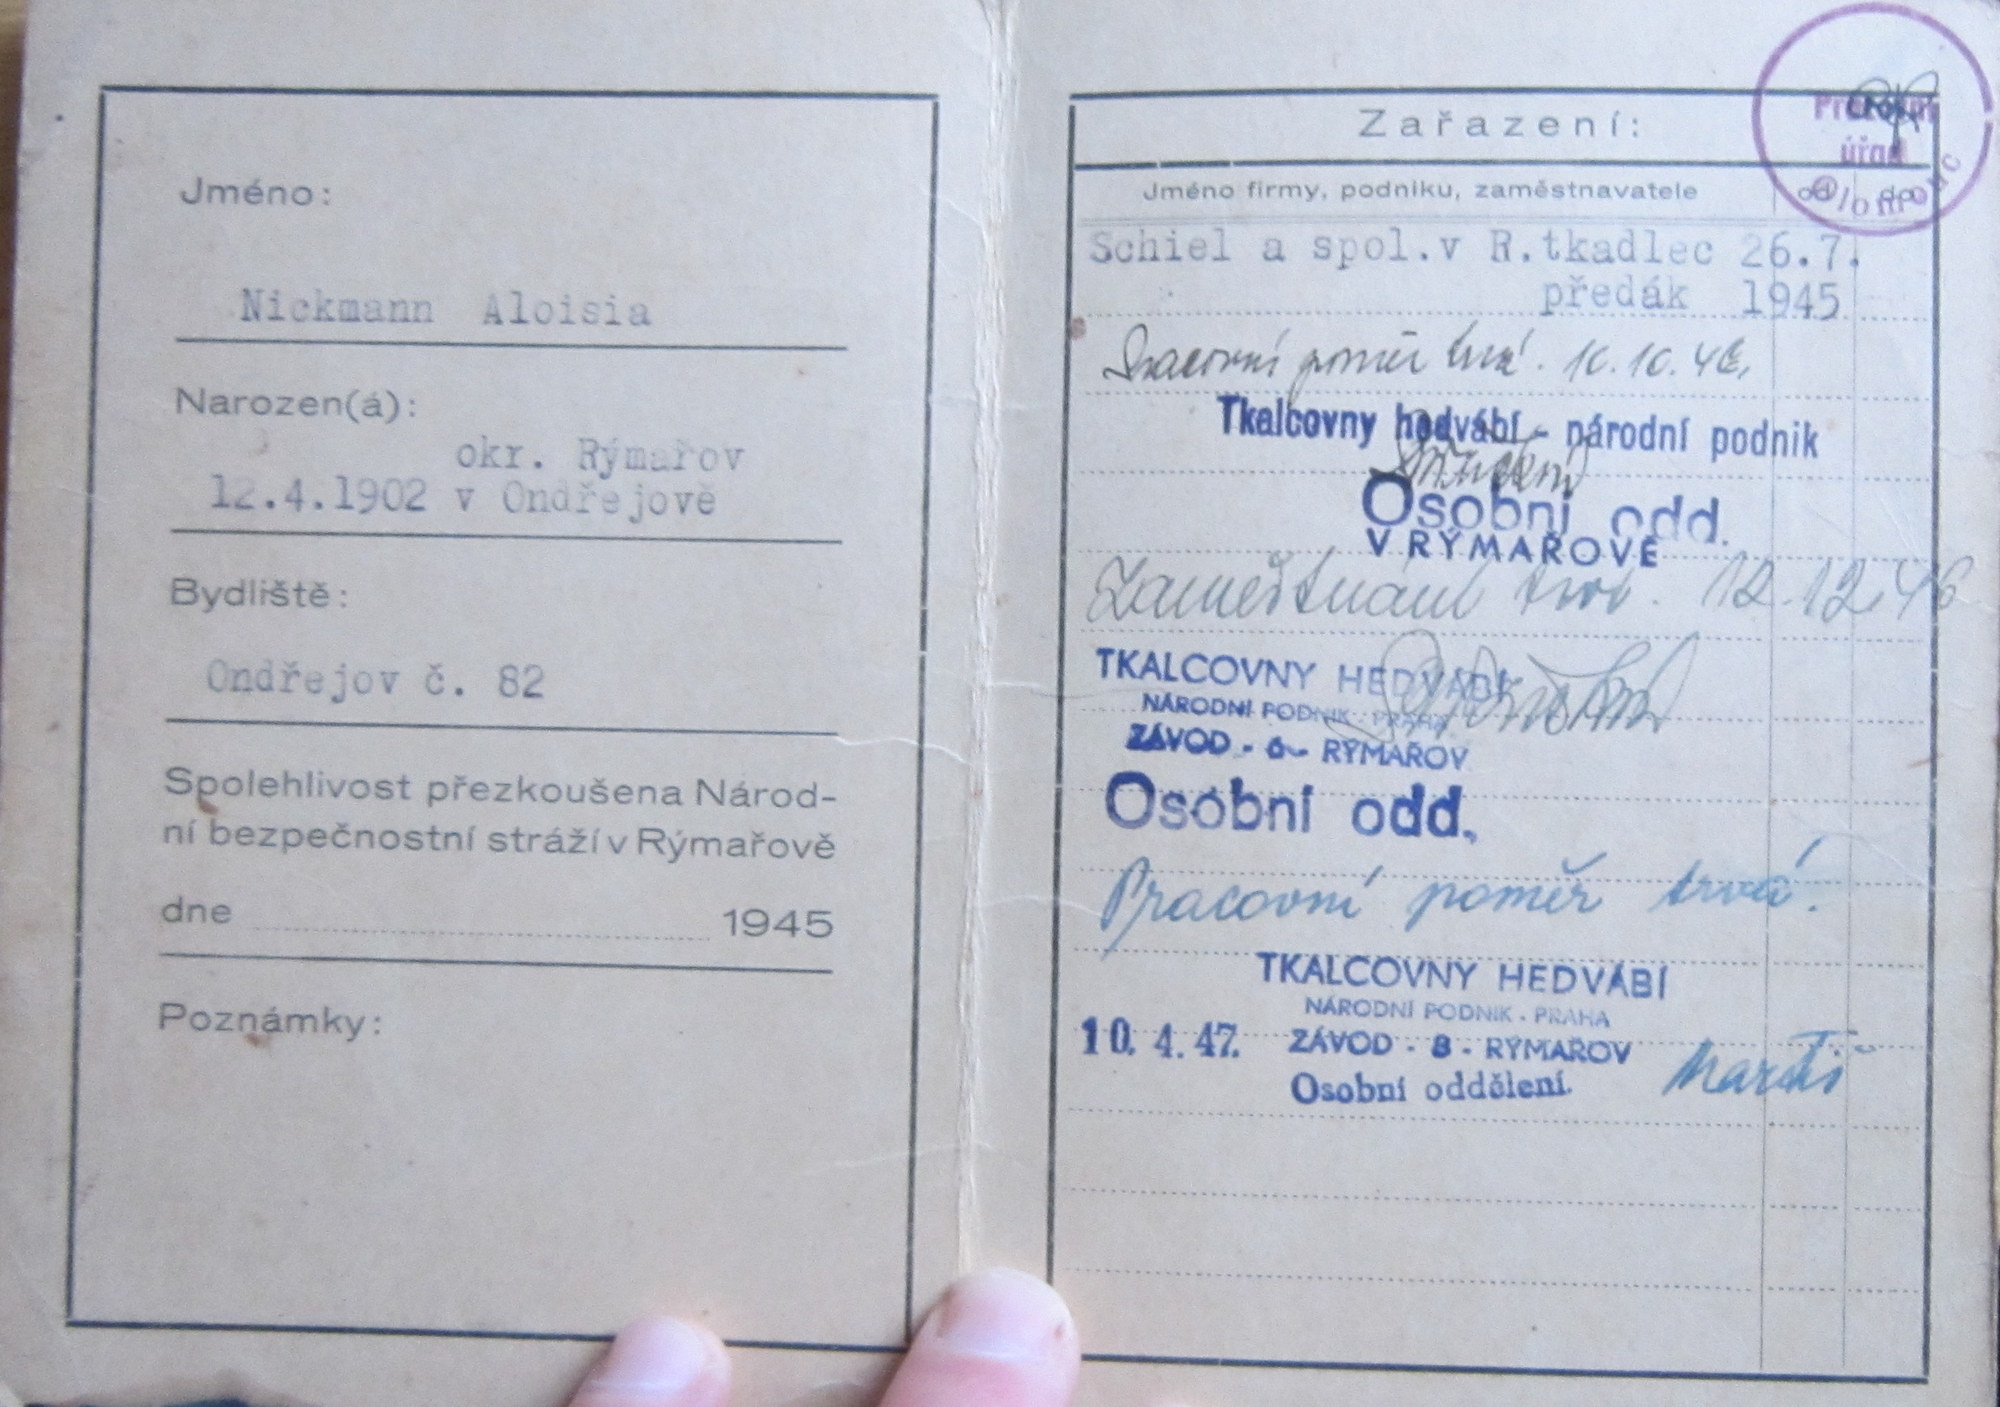 Jméno:
Nickmann Aloisia
Narozen(á):
okr. Rýmařov
12.4.1902 v Ondřejově
Bydliště:
Ondřejov č. 82
Spolehlivost přezkoušena Národ-
ní bezpečnostní stráží v Rýmařově
dne 1945
Poznámky:
Zařazení:
úřad
Jméno firmy, podniku, zaměstnavatele od do
Schiel a spol.v R.tkadlec 26.7.
předák 1945
Pracovní poměr trvá. 10.10.46.
Tkalcovny hedvábí - národní podnik
Osobní odd.
V RÝMAŘOVĚ
Zaměstnání trvá. 12.12.46
TKALCOVNY HEDVÁBÍ
NÁRODNÍ PODNIK - PRAHA
ZÁVOD - RÝMAŘOV
Osobní odd.
Pracovní poměr trvá.
TKALCOVNY HEDVÁBÍ
NÁRODNÍ PODNIK - PRAHA
10. 4. 47. ZÁVOD - 8 - RÝMAŘOV
Osobní oddělení.